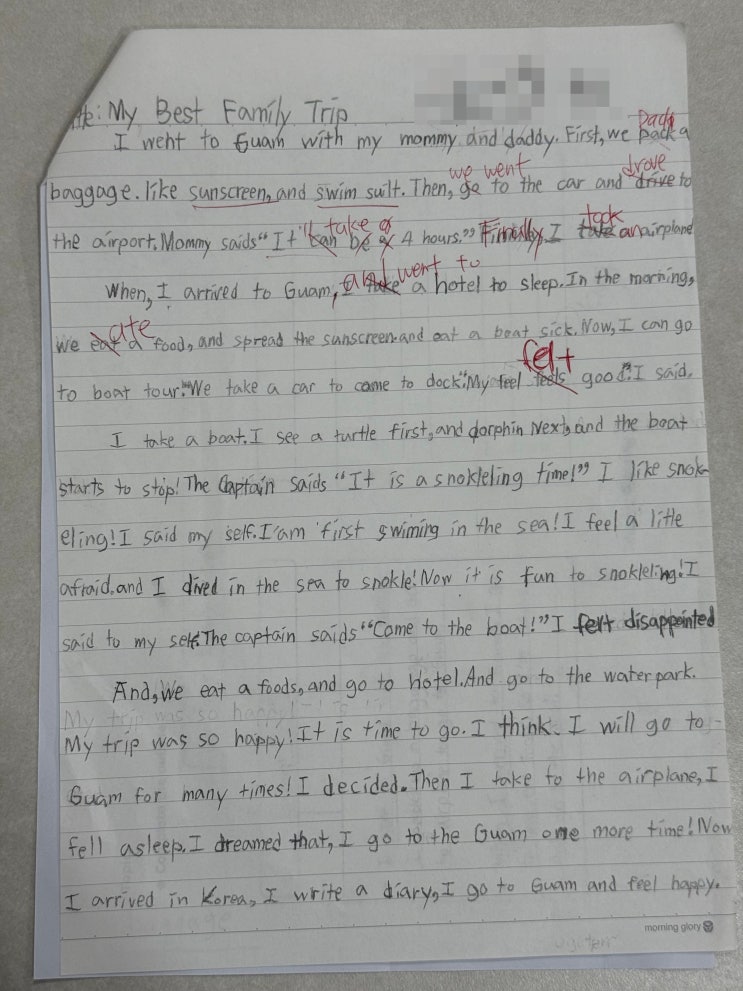 My Best Family Trip
I went to Guam with my mommy and daddy. First, we back a
baggage. like sunscreen, and swim suilt. Then, we went go to the car and drove drive to
the airport. Mommy saids "It 'll take can be 4 hours." Finally, I took take an airplane
When, I arrived to Guam, and went to I take a hotel to sleep. In the morning,
we ate eat a food, and spread the sunscreen and eat a boat sick. Now, I can go
to boat tour. "We take a car to come to dock." My feel felt feels good." I said.
I take a boat. I see a turtle first, and dorphin Next, and the boat
starts to stop! The Captain saids "It is a snokleling time!" I like snok-
eling! I said my self. I am first swiming in the sea! I feel a little
afraid, and I dived in the sea to snokle! Now it is fun to snokleling! I
said to my self. The captain saids "Come to the boat!" I felt disappointed
And, We eat a foods, and go to Hotel. And go to the water park.
My trip was so happy! It is time to go. I think. I will go to
Guam for many times! I decided. Then I take to the airplane, I
fell asleep. I dreamed that, I go to the Guam one more time! Now
I arrived in Korea, I write a diary, I go to Guam and feel happy.
morning glory